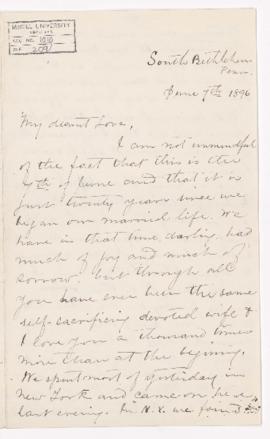 McGILL UNIVERSITY
ARCHIVES
ACC. NO. 1010
REF. 209
South Bethlehem
Penn.
June 7th 1896
My dearest Love,
I am not unmindful
of the fact that this is the
7th of June and that it is
just twenty years since we
began our married life. We
have in that time, darling, had
much of joy and much of
sorrow but through all
you have ever been the same
self-sacrificing devoted wife &
I love you a thousand times
more than at the begining.
We spent most of yesterday in
New York and came on here
last evening. In N.Y. we found